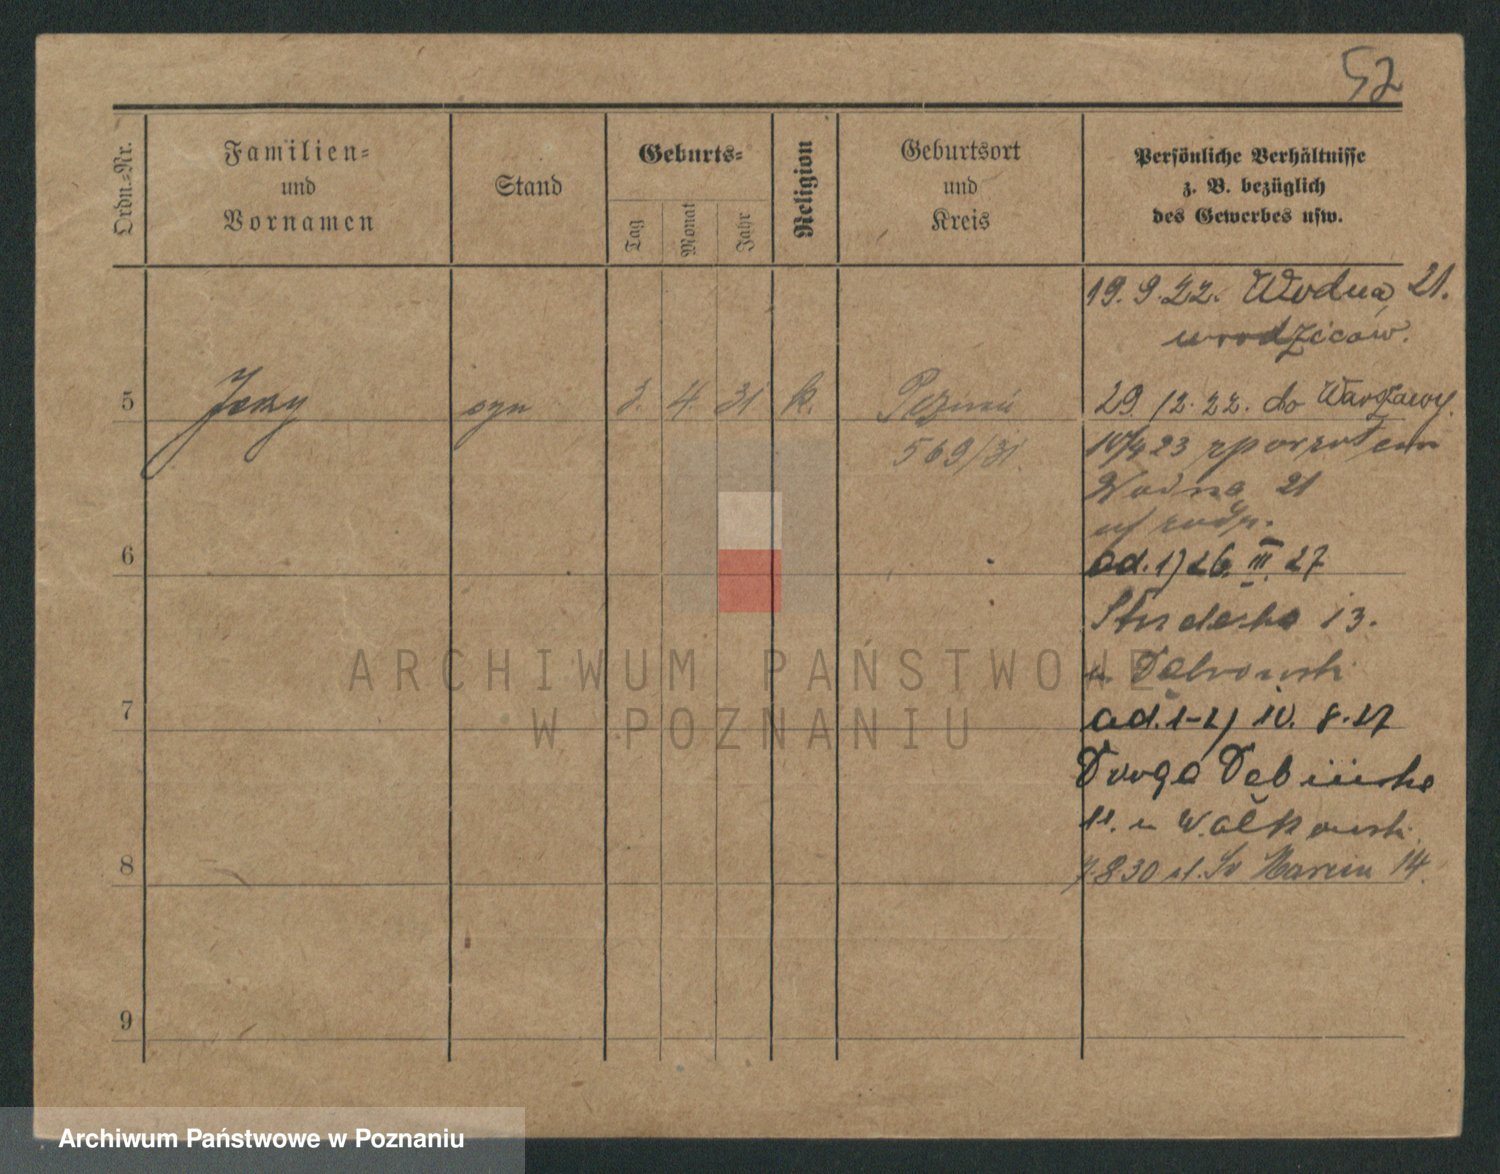 52
Ordn.-Nr.
Familien-
und
Vornamen
Stand
Geburts-
Tag
Monat
Jahr
Religion
Geburtsort
und
Kreis
Persönliche Verhältnisse
z. B. bezüglich
des Gewerbes usw.
19. 9. 22. Wodna 21.
u rodziców.
5 Jerzy syn 3. 4. 31 k. Poznań
569/31.
29 12. 22. do Warszawy.
10/4 23 z powrotem
Wodna 21
6
ad. 1) 26. III. 27
Strzelecka 13.
u Dąbrowski
7
ad. 1-2) 10. 8. 27
Droga Dębińska
11. u Wałkowski
8
7.8.30 ul. Sw Marcin 14.
9
ARCHIWUM PAŃSTWOWE
W POZNANIU
Archiwum Państwowe w Poznaniu